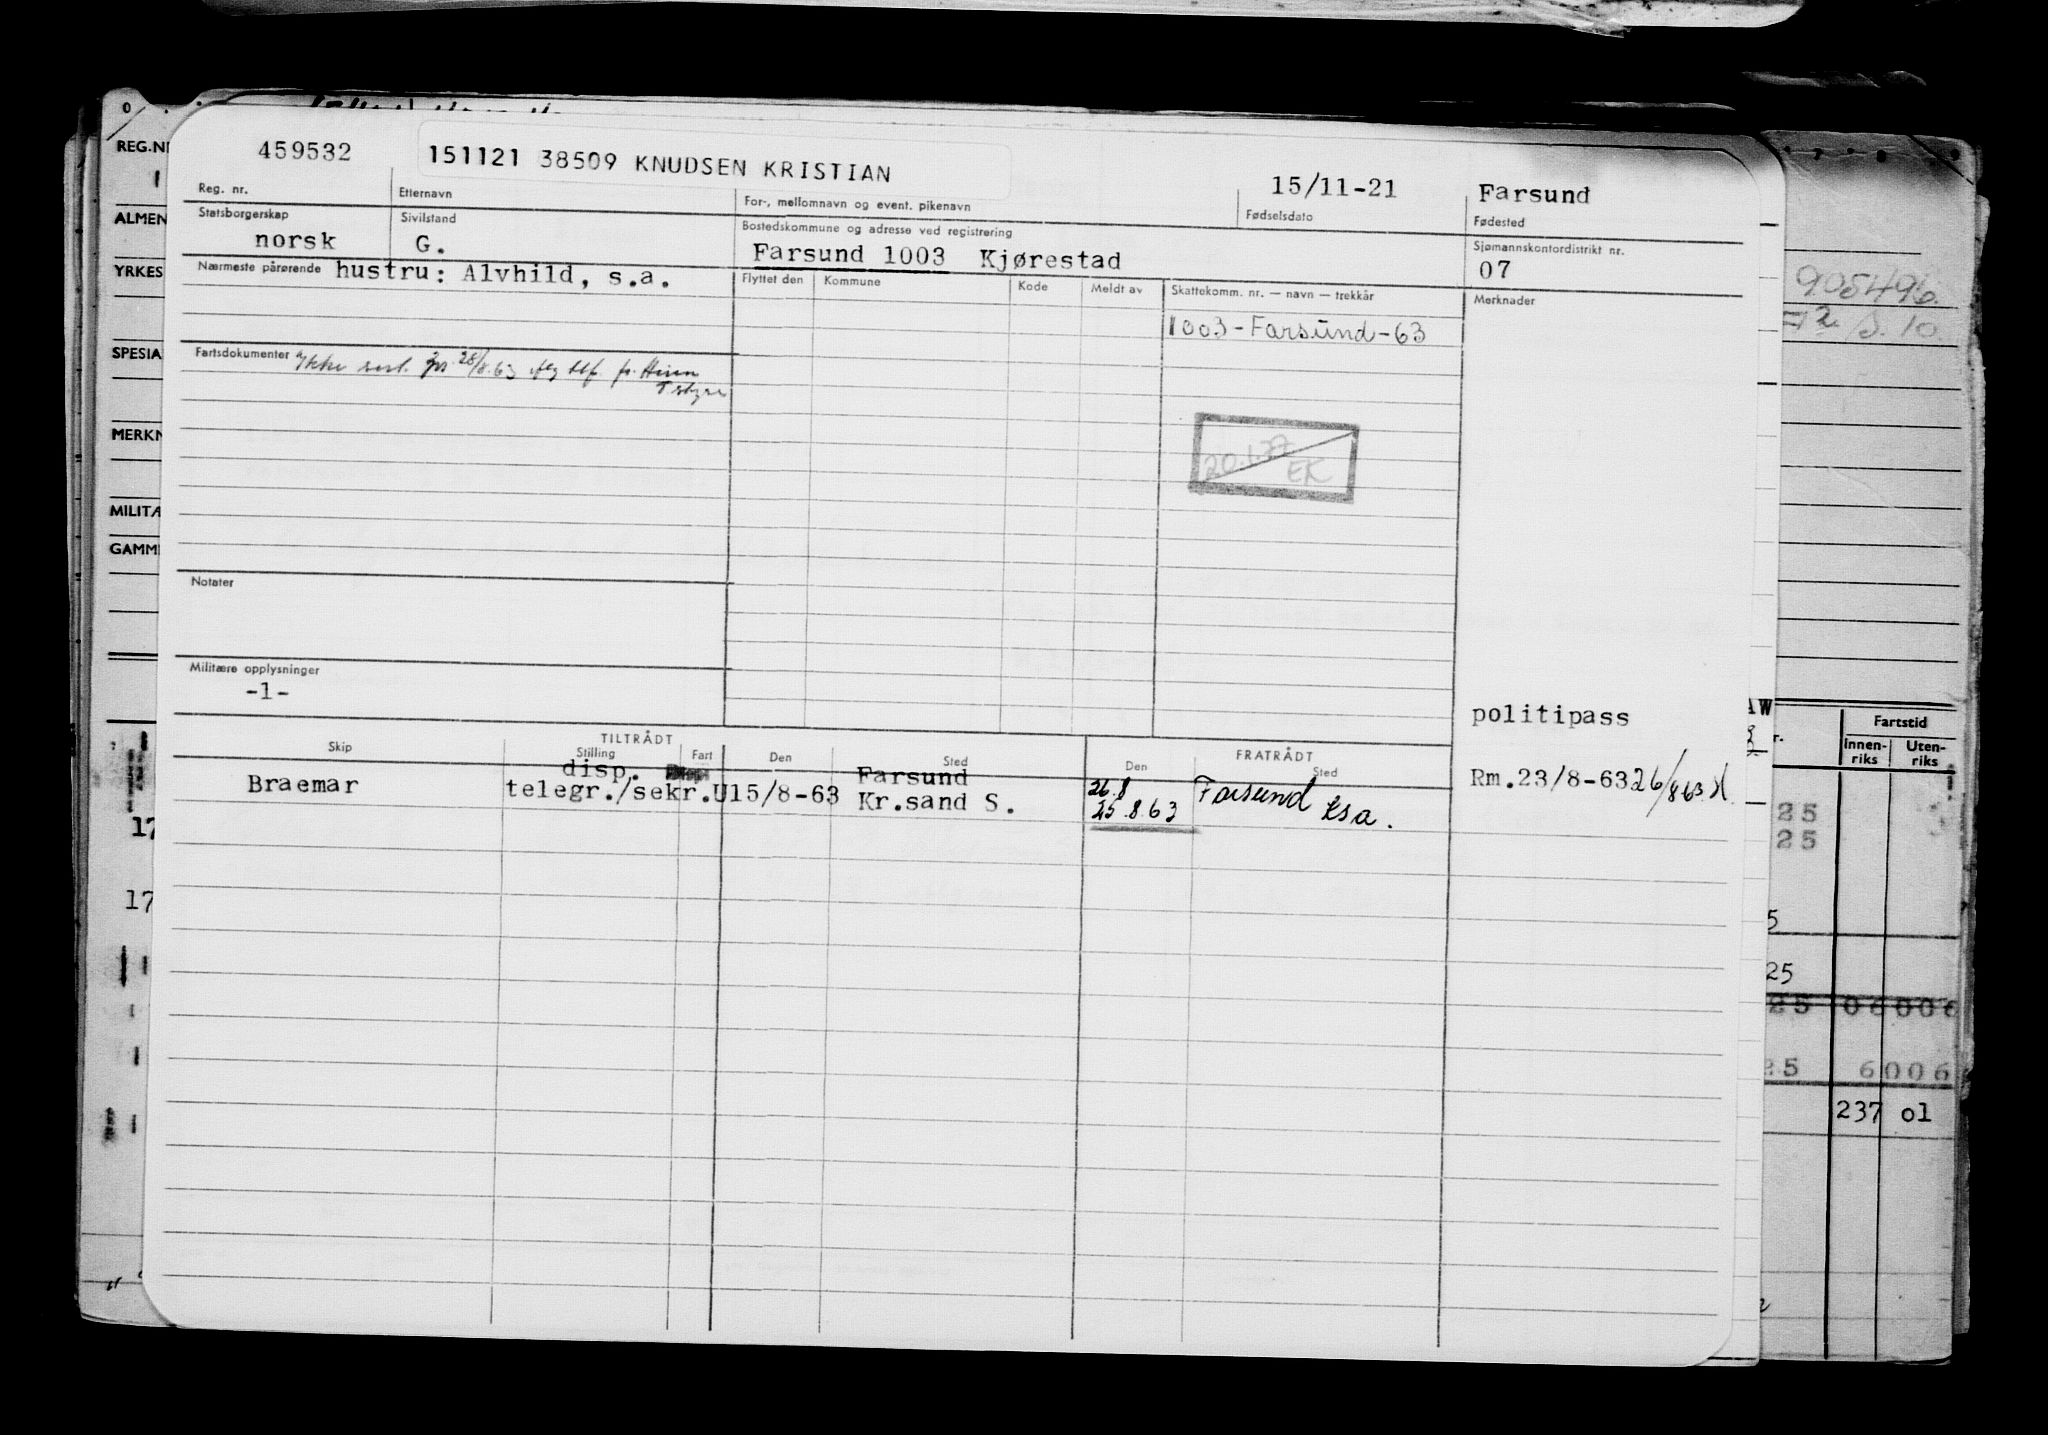 459532
151121 38509 KNUDSEN KRISTIAN
15/11-21
Farsund
Reg. nr.
Etternavn
For-, mellomnavn og event. pikenavn
Fødselsdato
Fødested
Statsborgerskap
norsk
Sivilstand
G.
Bostedskommune og adresse ved registrering
Farsund 1003 Kjørestad
Sjømannskontordistrikt nr.
07
Nærmeste pårørende hustru: Alvhild, s.a.
Flyttet den
Kommune
Kode
Meldt av
Skattekomm. nr. — navn — trekkår
Merknader
1003-Farsund-63
Fartsdokumenter
Ikke 28/8.63
20.1.77
EK
Notater
Militære opplysninger
-1-
politipass
Skip
TILTRÅDT
Stilling
Fart
Den
Sted
FRATRÅDT
Den
Sted
Braemar
disp.
telegr./sekr.U15/8-63
Farsund
Kr.sand S.
26.8
25.8.63
Farsund
Ksa.
Rm.23/8-63 26/8 63
REG.N
ALMEN
YRKES
SPESIA
MERKN
MILITÆ
GAMM
17
17
905496.
Fartstid
Innen-
riks
Uten-
riks
25
25
5
25
25 06006
25 6006
237 01